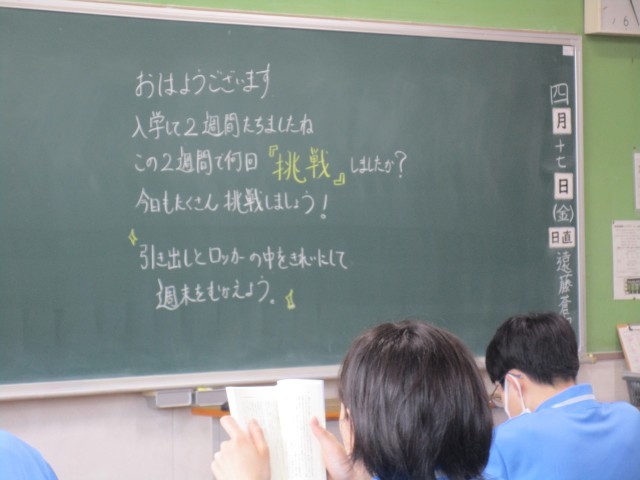 おはようございます
入学して2週間たちましたね
この2週間で何回『挑戦』しましたか?
今日もたくさん挑戦しましょう!
引き出しとロッカーの中をきれいにして
週末をむかえよう。
四月十七日(金)
日直
遠藤蒼